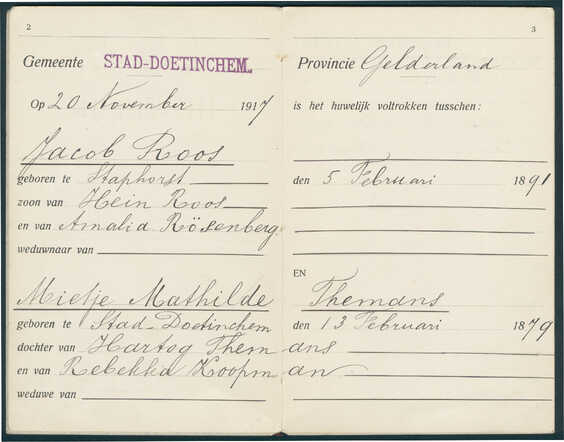 2
Gemeente STAD-DOETINCHEM.
Op 20 November 1917
Jacob Roos
geboren te Staphorst
zoon van Hein Roos
en van Amalia Rösenberg
weduwnaar van
Mietje Mathilde
geboren te Stad-Doetinchem
dochter van Hartog Them
en van Rebekka Koopm
weduwe van
3
Provincie Gelderland
is het huwelijk voltrokken tusschen:
den 5 Februari 1891
EN
Themans
den 13 Februari 1879
ans
an